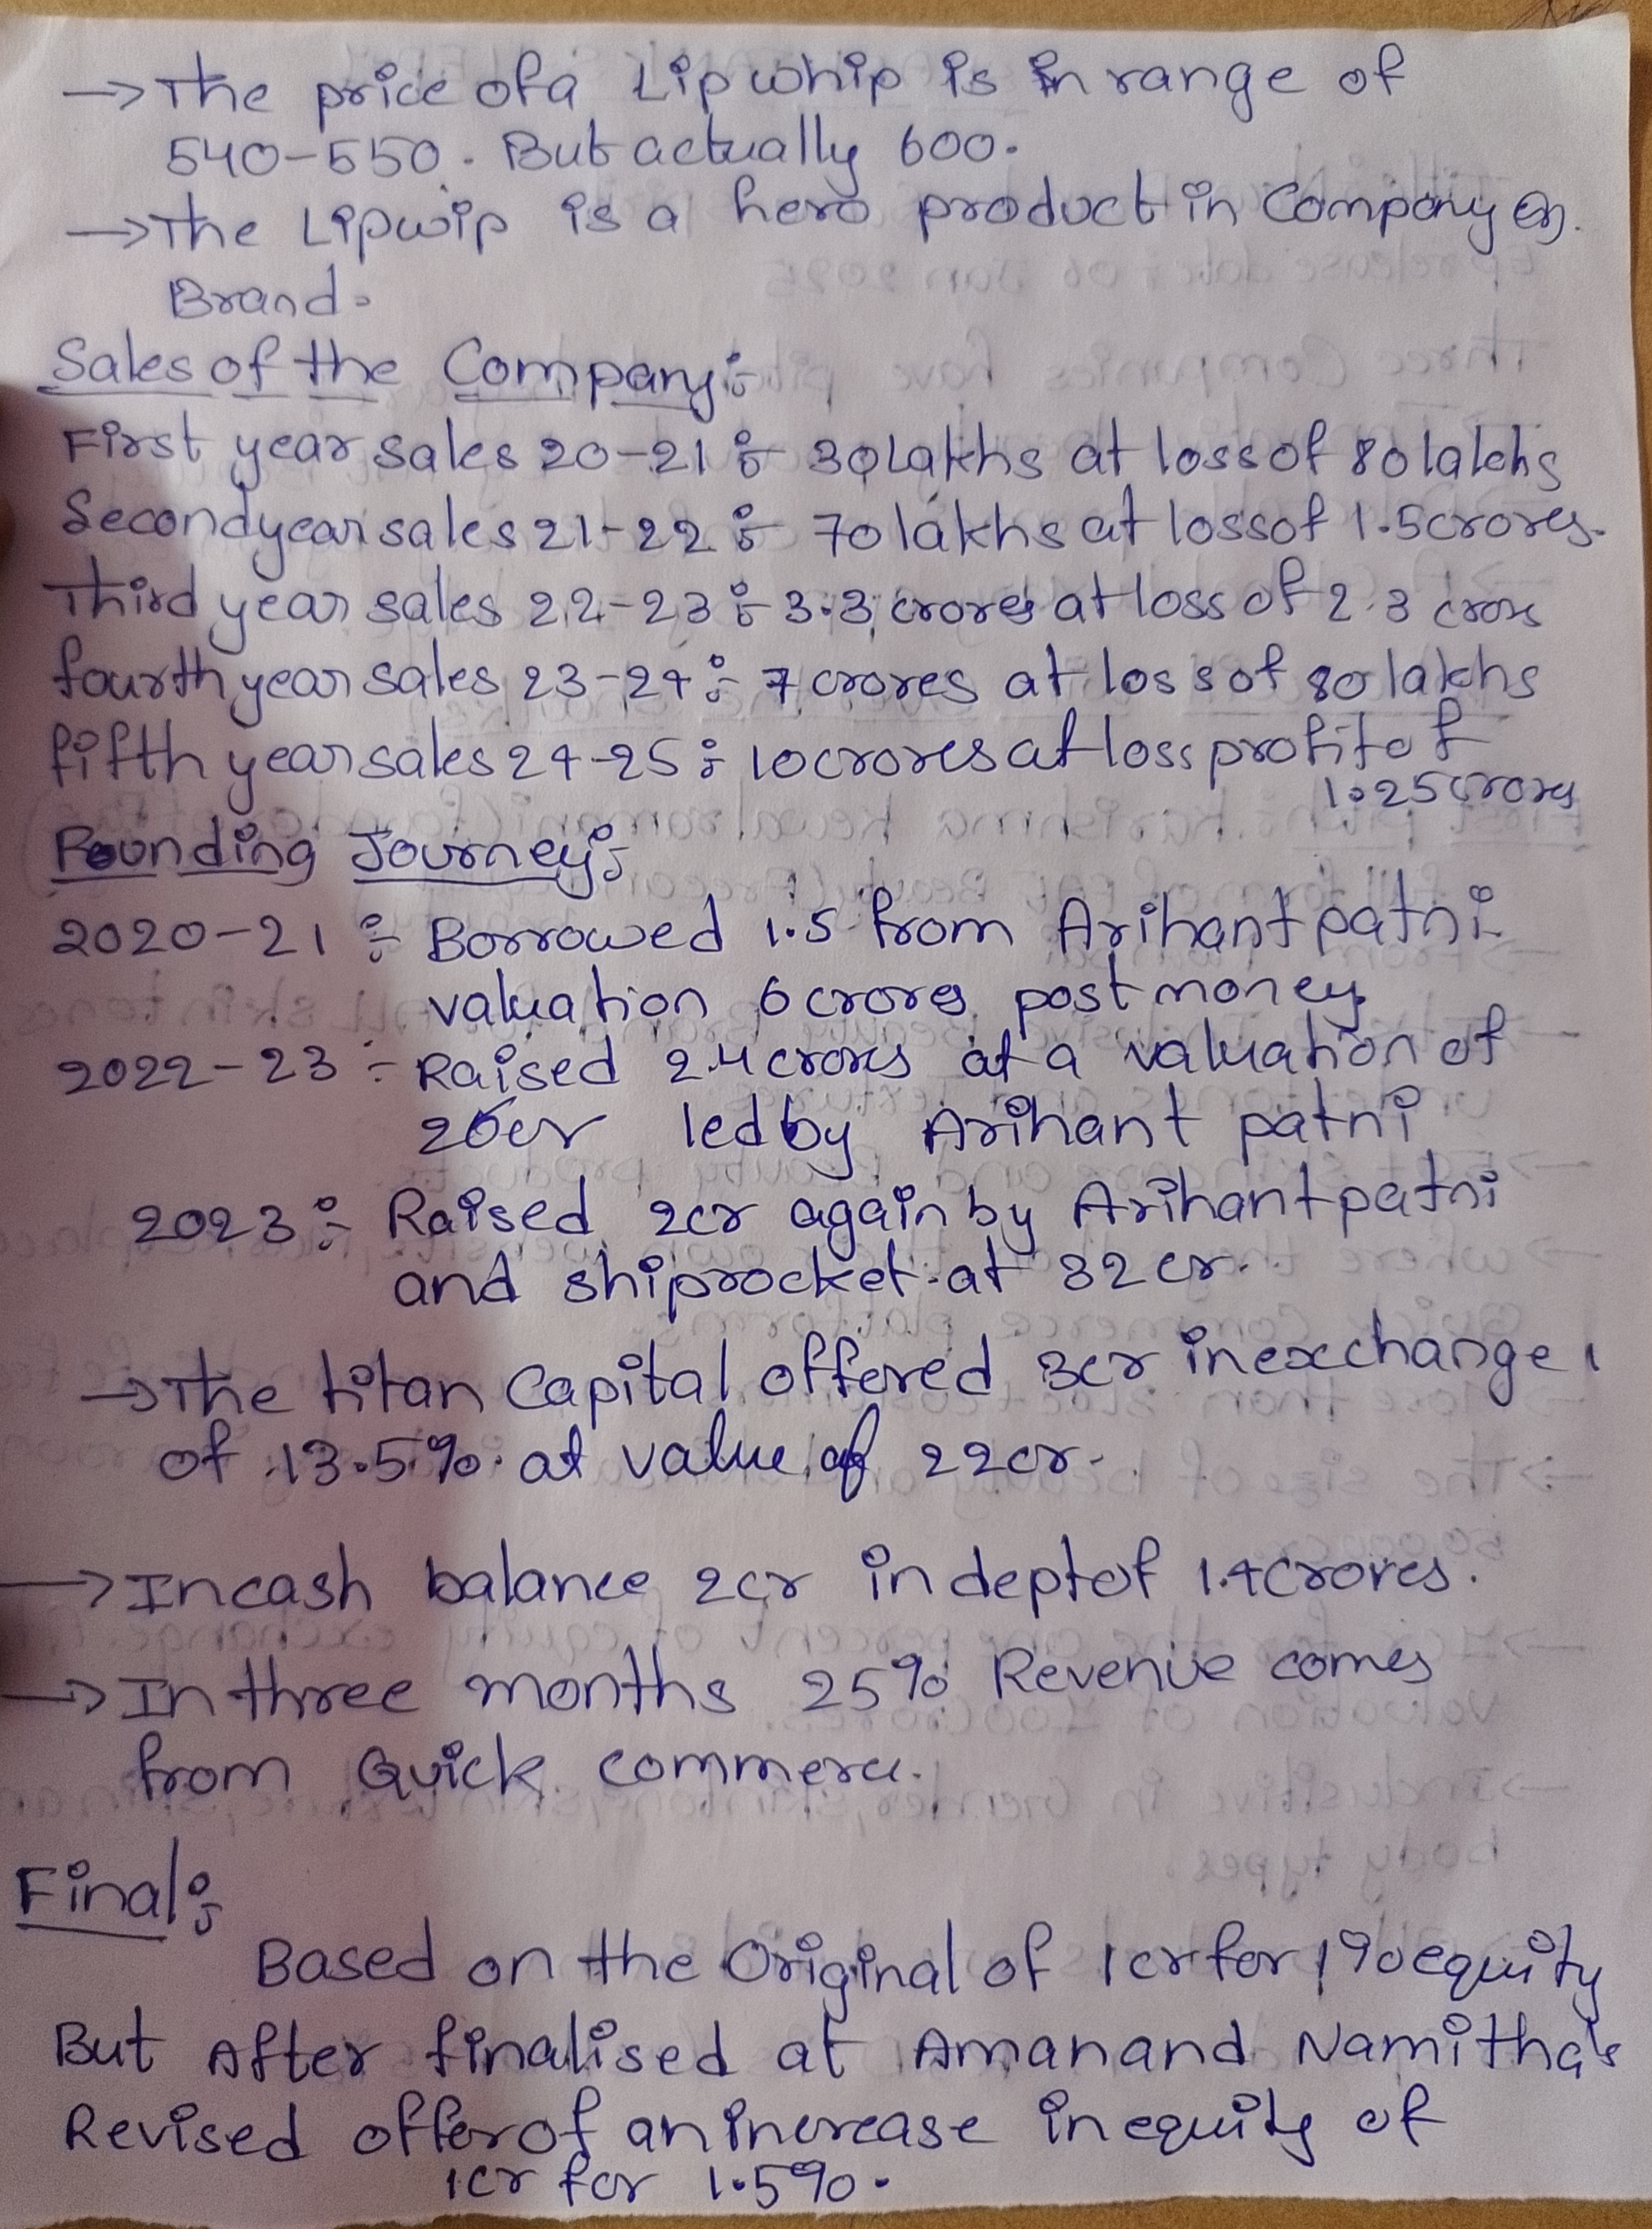 → The price of a Lip whip is in range of
540-550. But actually 600.
→ The Lipwip is a hero product in Company
Brand.
Sales of the Company:-
First year sales 20-21 :- 30 Lakhs at loss of 80 lakhs
Second year sales 21-22 :- 70 lakhs at loss of 1.5 crores.
Third year sales 22-23 :- 3.3 crores at loss of 2.3 crores
fourth year sales 23-24 :- 7 crores at loss of 80 lakhs
fifth year sales 24-25 :- 10 crores at loss profit of
1.25 crores
Founding Journey:-
2020-21 :- Borrowed 1.5 from Arihant patni
valuation 6 crores post money
2022-23 :- Raised 2.4 crores at a valuation of
20cr led by Arihant patni
2023 :- Raised 2cr again by Arihant patni
and shiprocket at 32 cr.
→ The titan Capital offered 3cr in exchange
of 13.5% at value of 22cr.
→ In cash balance 2cr in dept of 1.4 crores.
→ In three months 25% Revenue comes
from Quick commerce.
Final:-
Based on the Original of 1cr for 1% equity
But After finalised at Aman and Namitha's
Revised offer of an increase in equity of
1cr for 1.5%.